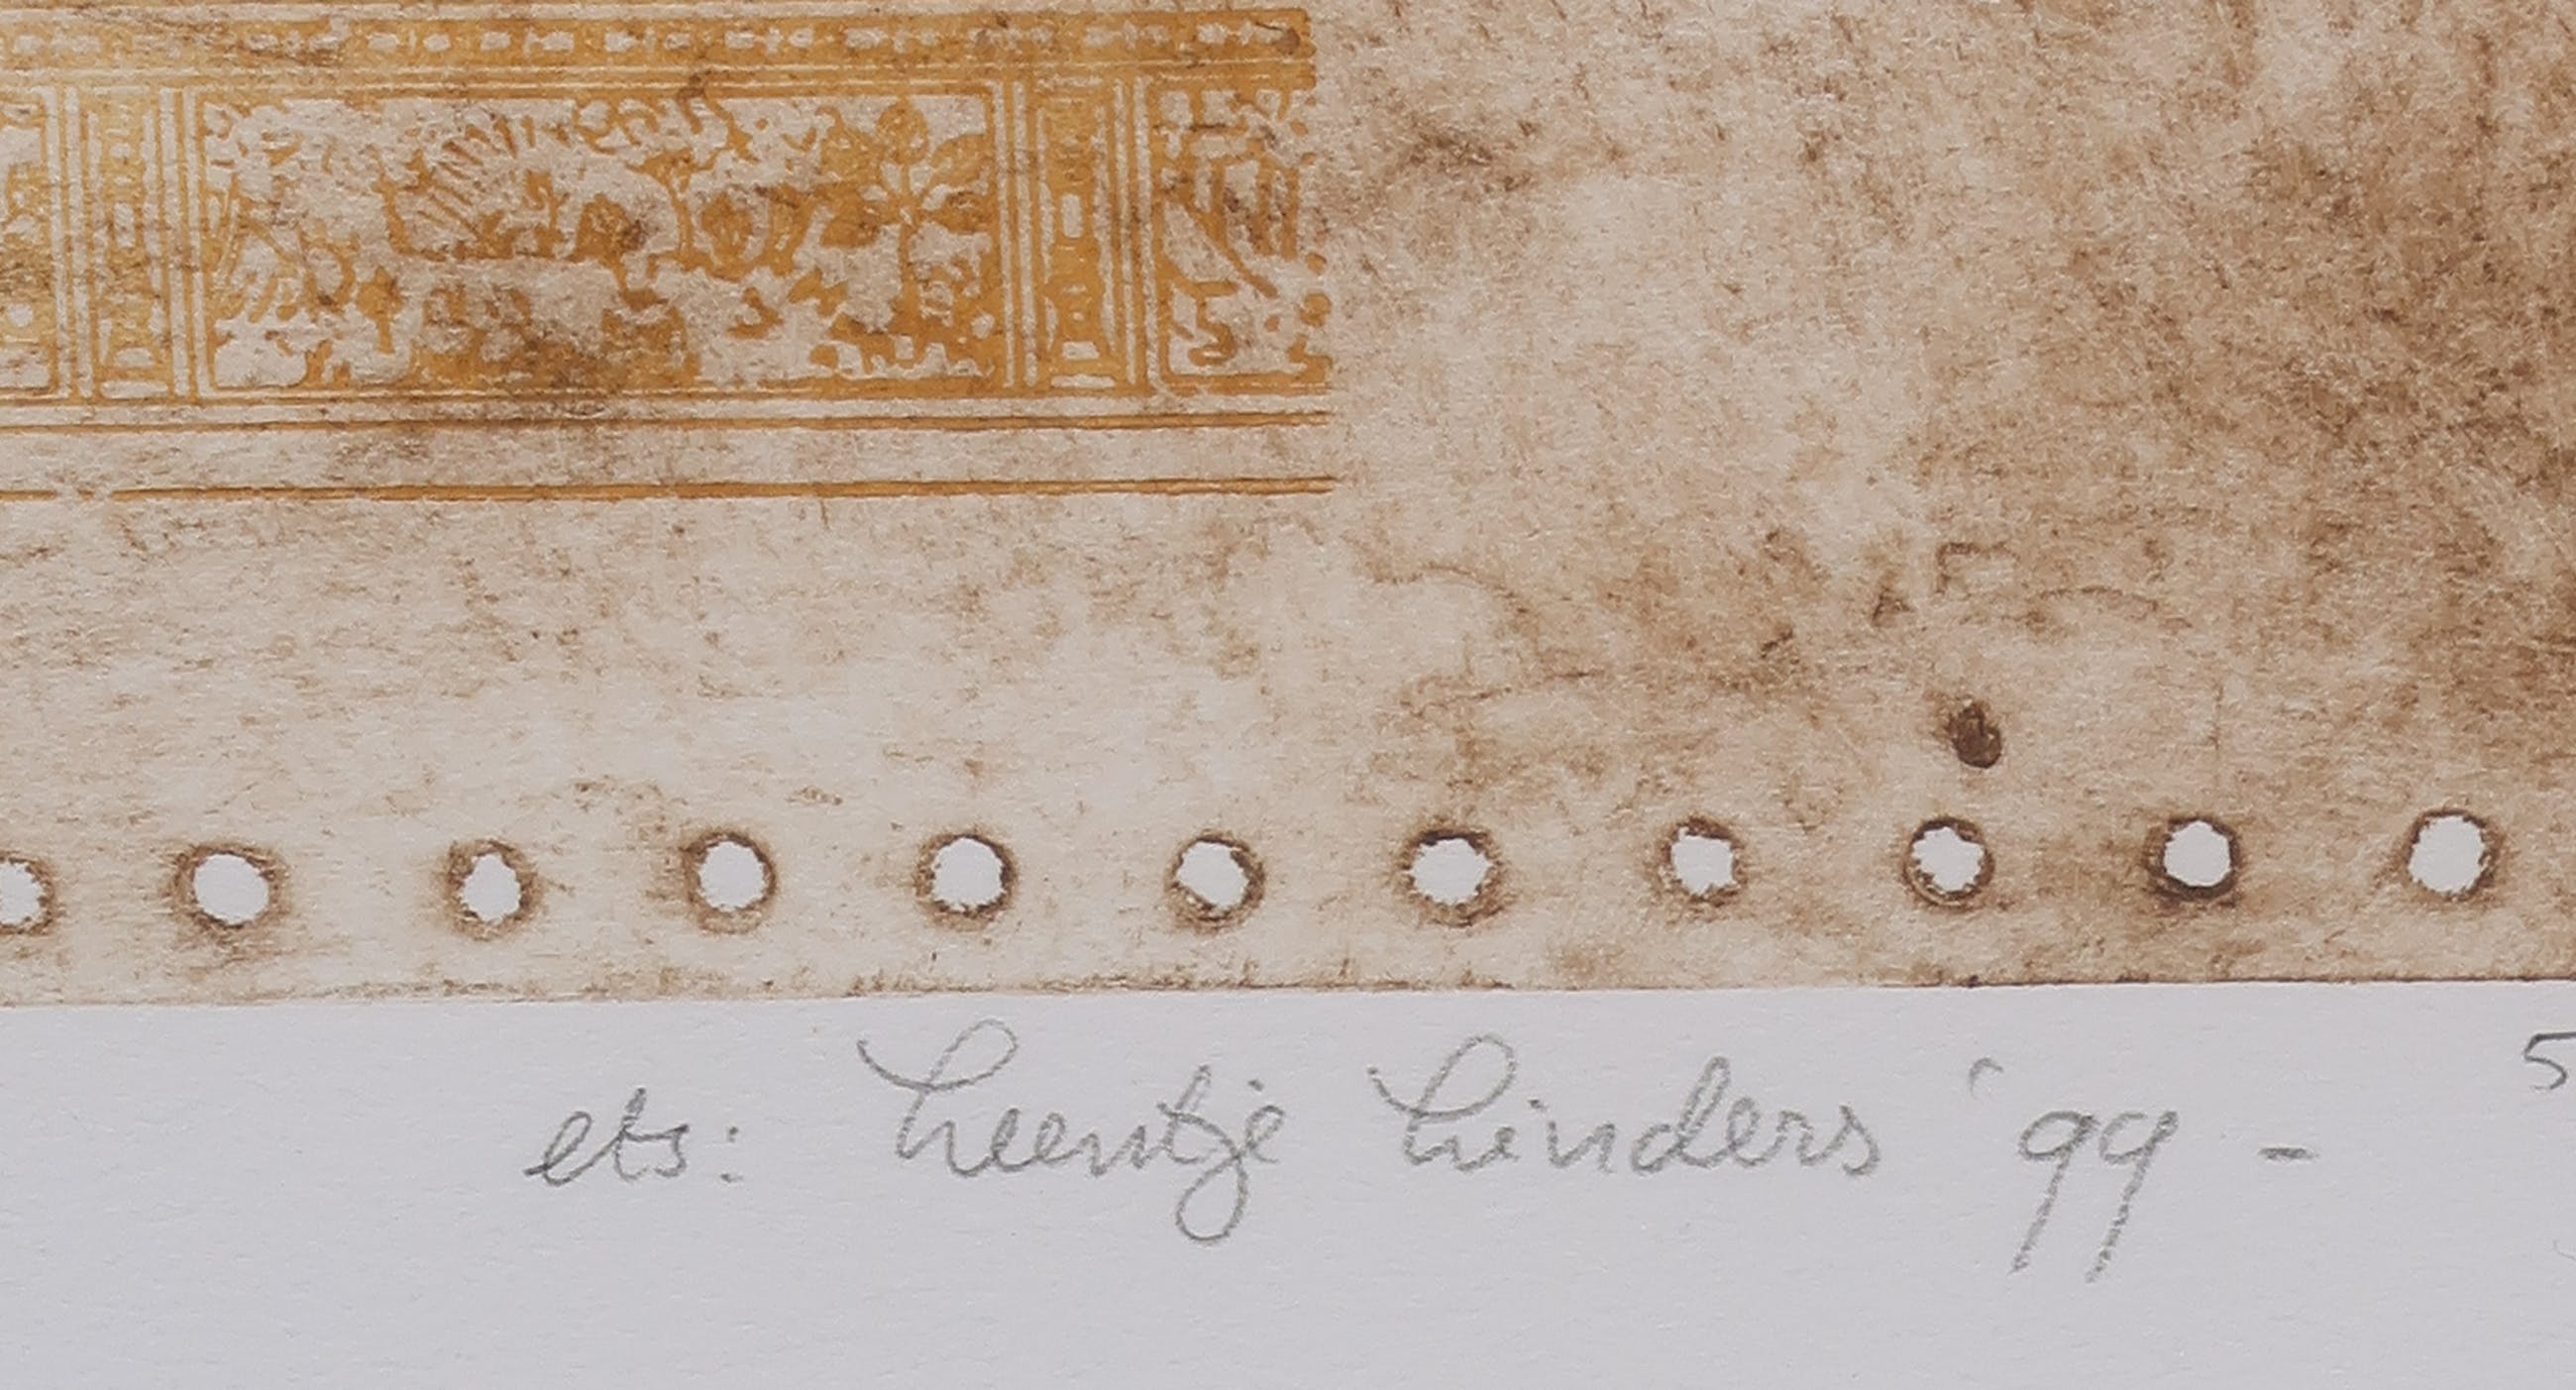 ets: Leentje Linders '99 - 5